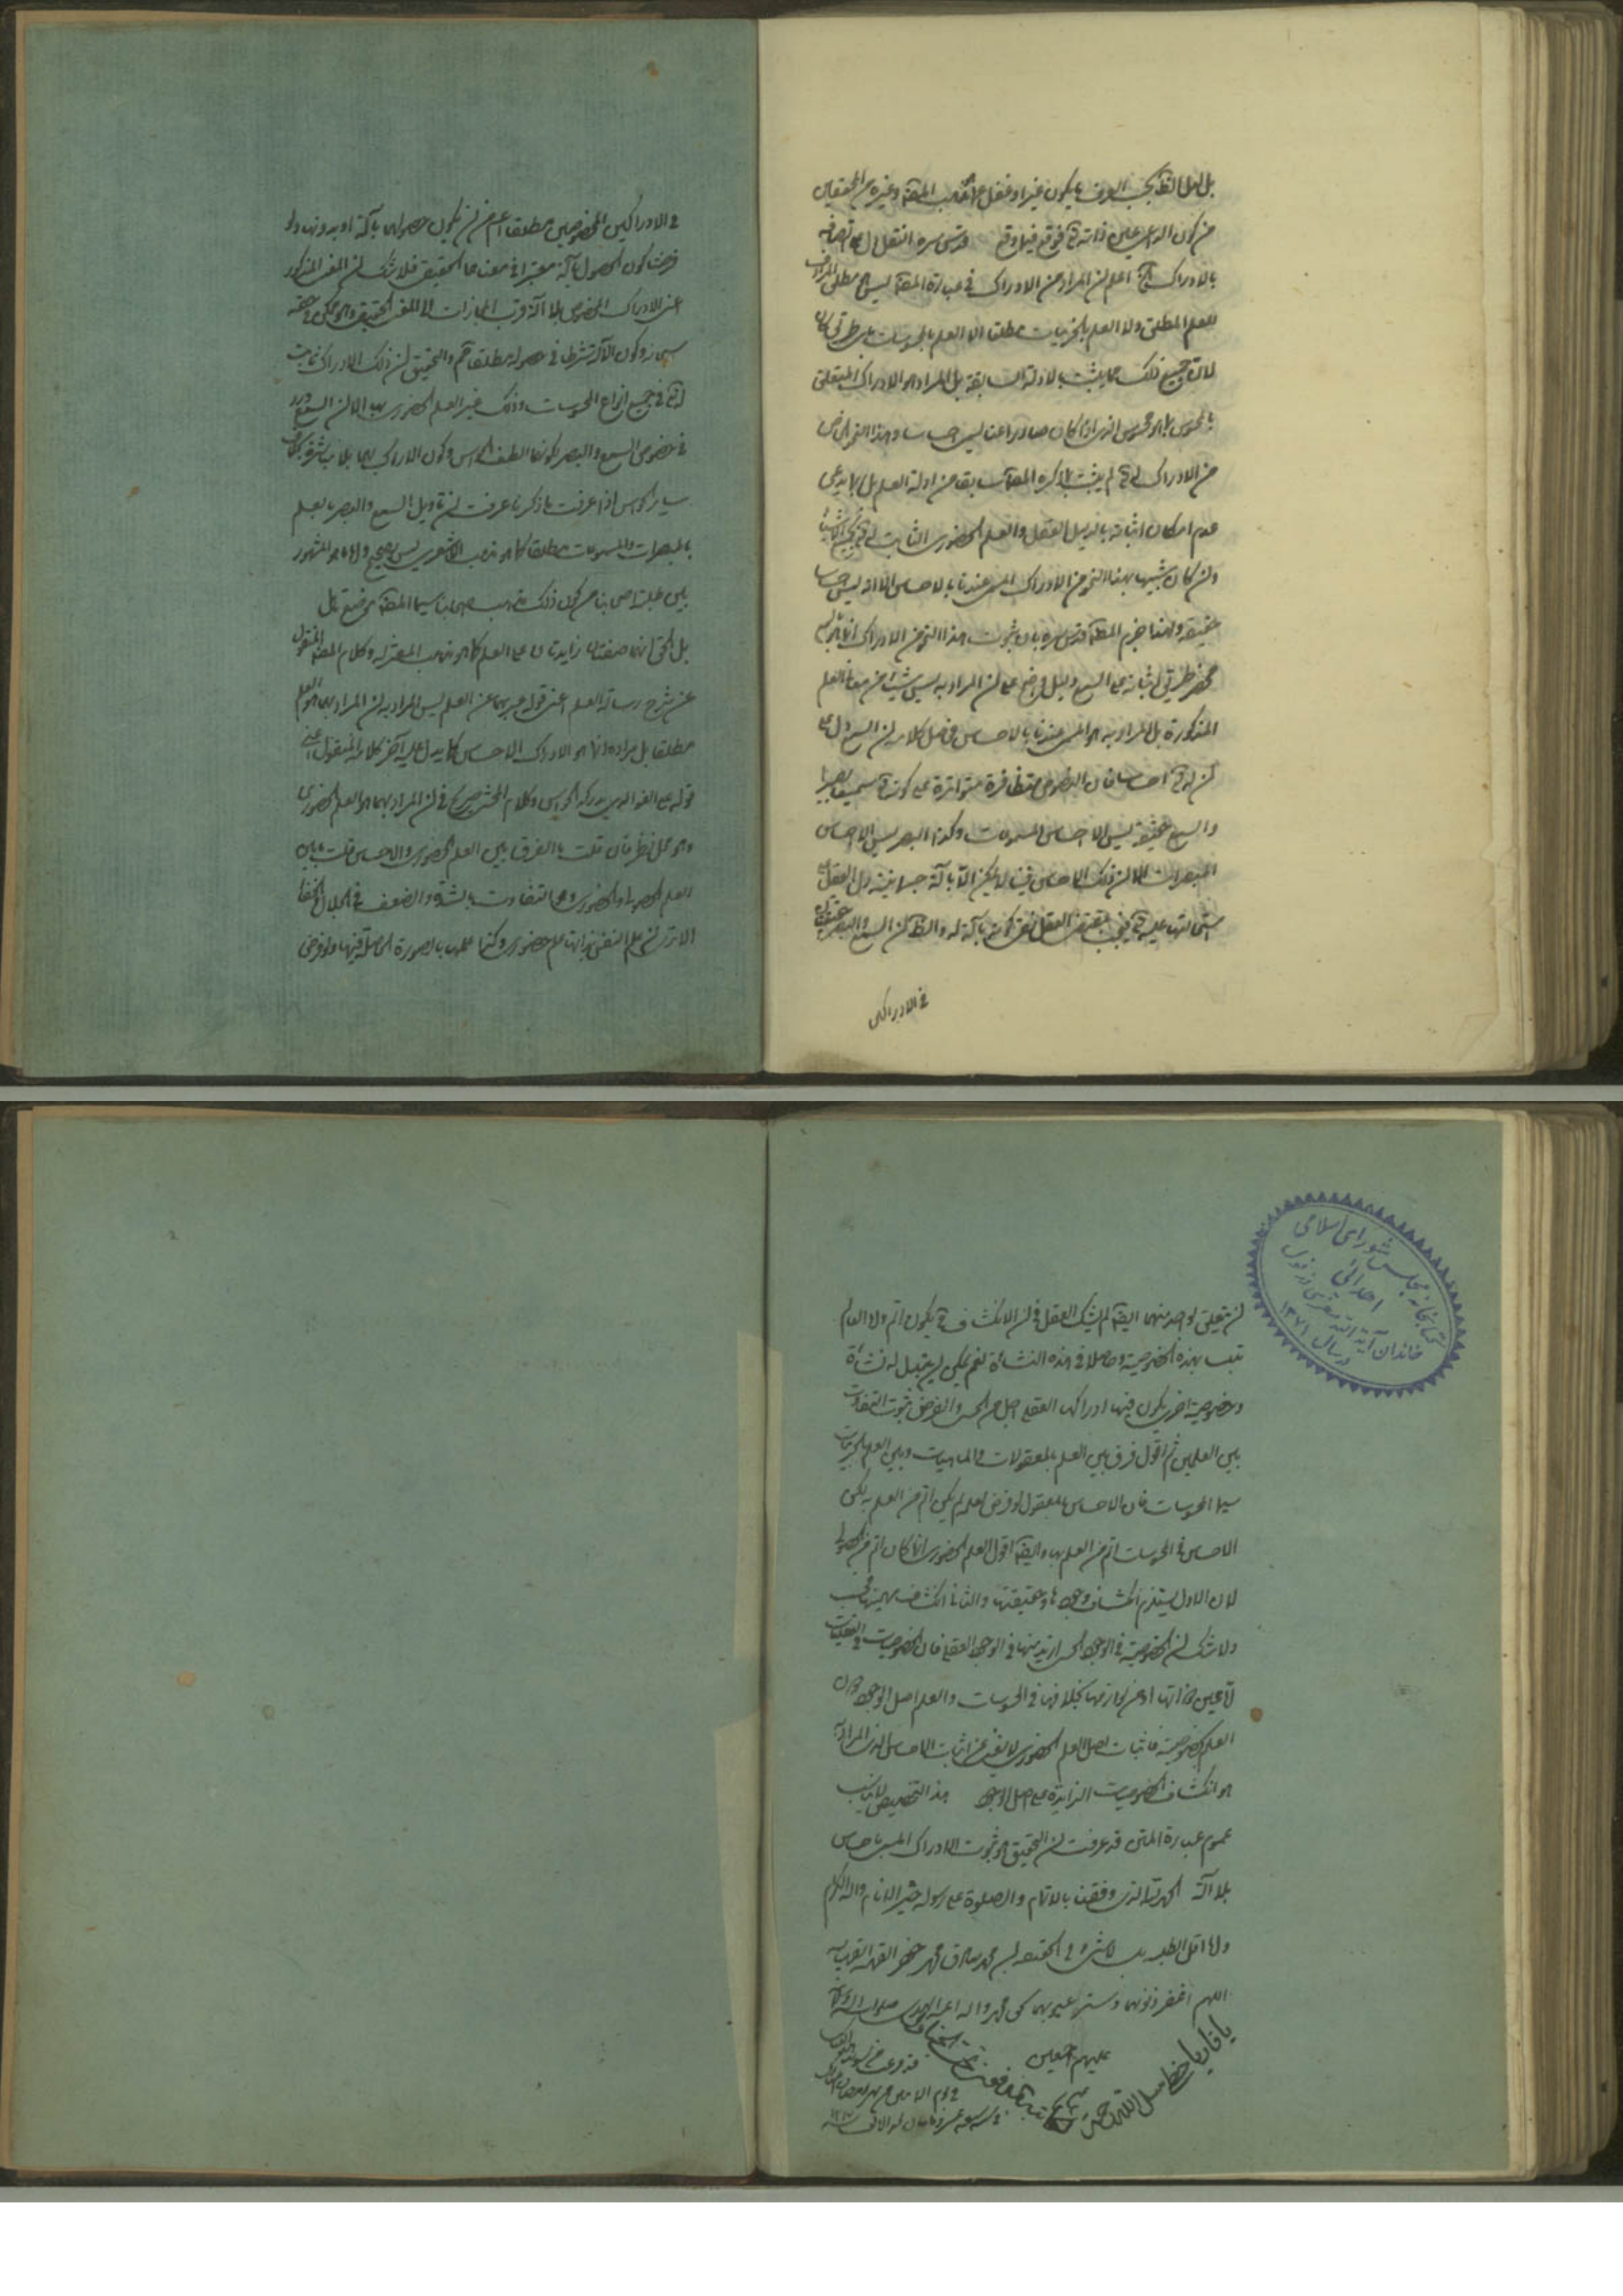 بل لعل الظ بحسب العرف ما يكون عينا او غفل عن مذهب المصنف وغيره من المحققين
من كون الواجب على ذاته تع فوقع فيما وقع قدس سره النقل دل على اتصافه
بالادراك اه اعلم ان المراد من الادراك في عبارة المصنف ليس مطلق المرادف
للعلم المطلق ولا العلم بالجزئيات مطلقا ولا العلم بالمحسوسات باي طريق كان
لان جميع ذلك مما يثبت بالادلة السابقة بل المراد هو الادراك المتعلق
بالمحسوس بما هو محسوس الذي اذا كان صادرا عنا ليس احساسا وهذا النحو الخاص
من الادراك له تع لم يثبت بما ذكره المصنف سابقا من ادلة العلم بل ربما يدعى
عدم امكان اثباته بالدليل العقل والعلم الحضوري الثابت له تع بجميع الاشياء
وان كان شبيها بهذا النحو من الادراك المسمى عندنا بالاحساس الا انه ليس احساسا
حقيقة ولهذا جزم المصنف قدس سره بان ثبوت هذا النحو من الادراك انما هو بالسمع
فحصر طريق اثباته على السمع دليل واضح على ان المراد به ليس شيئا من معاني العلم
المذكورة بل المراد به هو المسمى عندنا بالاحساس فحاصل كلامه ان السمع دل على
ان له تع احساسا فان النصوص متظافرة متواترة على كونه تع سميعا بصيرا
والسمع حقيقة ليس الا احساس المسموعات وكذا البصر ليس الا احساس
المبصرات الا ان ذلك الاحساس فينا لا يمكن الا بآلة جسمانية دل العقل على
استحالتها عليه تع فيجب بمقتضى العقل نفى كونه بآلة له والظ ان السمع والبصر حقيقتان
في الادراكين
في الادراكين المخصوصين مطلقا اعم من ان يكون حصولهما بآلة او بدونها ولو
فرضنا كون الحصول بآلة معتبرا في معناهما الحقيقي فلا شك ان المعنى المذكور
اعني الادراك المخصوص بلا آلة اقرب المجازات الى المعنى الحقيقي وهو ممكن في حقه
سبحانه وكون الآلة شرطا في حصوله مطلقا مم والتحقيق ان ذلك الادراك ثابت
له تع في جميع انواع المحسوسات وذلك غير العلم الحضوري بها الا ان السمع ورد
في خصوص السمع والبصر لكونهما الطف الحواس وكون الادراك بهما بلا مباشرة بخلاف
سائر الحواس اذا عرفت ما ذكرنا عرفت ان تاويل السمع والبصر بالعلم
بالمبصرات والمسموعات مطلقا كما هو مذهب الاشعري ليس بصحيح وان ما هو المشهور
بين علماء اصحابنا من كون ذلك مذهب اصحابنا سيما المصنف موضع تامل
بل الحق انهما صفتان زايدتان على العلم كما هو مذهب المعتزلة وكلام المصنف المنقول
عن شرح رسالة العلم اعني قوله عبر بهما عن العلم ليس المراد به ان المراد بهما هو العلم
مطلقا بل مراده انما هو الادراك الاحساس كما يدل عليه آخر كلامه المنقول اعني
قوله على النحو الذي يدركه الحواس وكلام المحشي صريح في ان المراد بهما هو العلم الحضوري
وهو محل نظر فان قلت ما الفرق بين العلم الحضوري والاحساس قلت ما بين
العلم الحصولي والحضوري وهما التفاوت بالشدة والضعف في الجلاء والخفاء
الا ترى ان علم النفس بذاتها علم حضوري وكذا علمها بالصورة الحاصلة فيها ولو فرض
ان تعلق لواحد منهما ايضا لم يشك العقل في ان الانكشاف تع يكون اتم ولو العالم
بهذه الخصوصية وحاصلا في هذه النشأة نعم يمكن ان يتبدل له نشأة
وخصوصية اخرى يكون فيها ادراكها العقلي اجل من الحسي والغرض ثبوت التفاوت
بين العلمين ثم اقول فرق بين العلم بالمعقولات والماهيات وبين العلم بالجزئيات
سيما المحسوسات فان الاحساس بالمعقول لو فرض لعله لم يكن اتم من العلم به لكن
الاحساس في المحسوسات اتم من العلم بها وايضا اقول العلم الحضوري انما كان اتم من الحصولي
لان الاول يستلزم انكشاف وجوداتها وحقيقتها والثاني انكشاف مهيتها فحسب
ولا شك ان الخصوصية في الوجود الحسي ازيد منها في الوجود العقلي فان الخصوصيات في العقليات
لا عين ذواتها او من لوازمها بخلافها في المحسوسات والعلم باصل الوجود دون
العلم بخصوصيته فاثبات اصل العلم الحضوري لا يغني عن اثبات الاحساس الذي المراد به
هو انكشاف الخصوصيات الزايدة على اصل الوجود هذا التخصيص لا يناسب
عموم عبارة المتن قد عرفت ان التحقيق هو ثبوت الادراك المسمى باحساس
بلا آلة الحمد لله الذي وفقنا بالاتمام والصلوة على رسوله خير الانام واله الكرام
وانا اقل الطلبة بل لا شيء في الحقيقة ابن محمد صادق محمد جعفر
اللهم اغفر ذنوبهما واستر عيوبهما بحق محمد واله ائمة الهدى صلوات الله
عليهم اجمعين
كتابخانه مجلس شورای اسلامی
اهدائی
خاندان آیة الله
در سال ۱۳۷۱